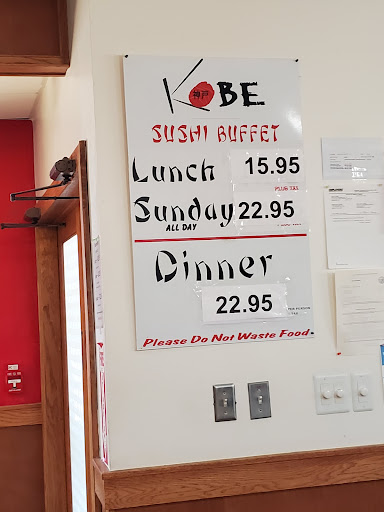 KOBE
神戸
SUSHI BUFFET
Lunch 15.95
PLUS TAX
Sunday 22.95
ALL DAY
Dinner
22.95
Please Do Not Waste Food